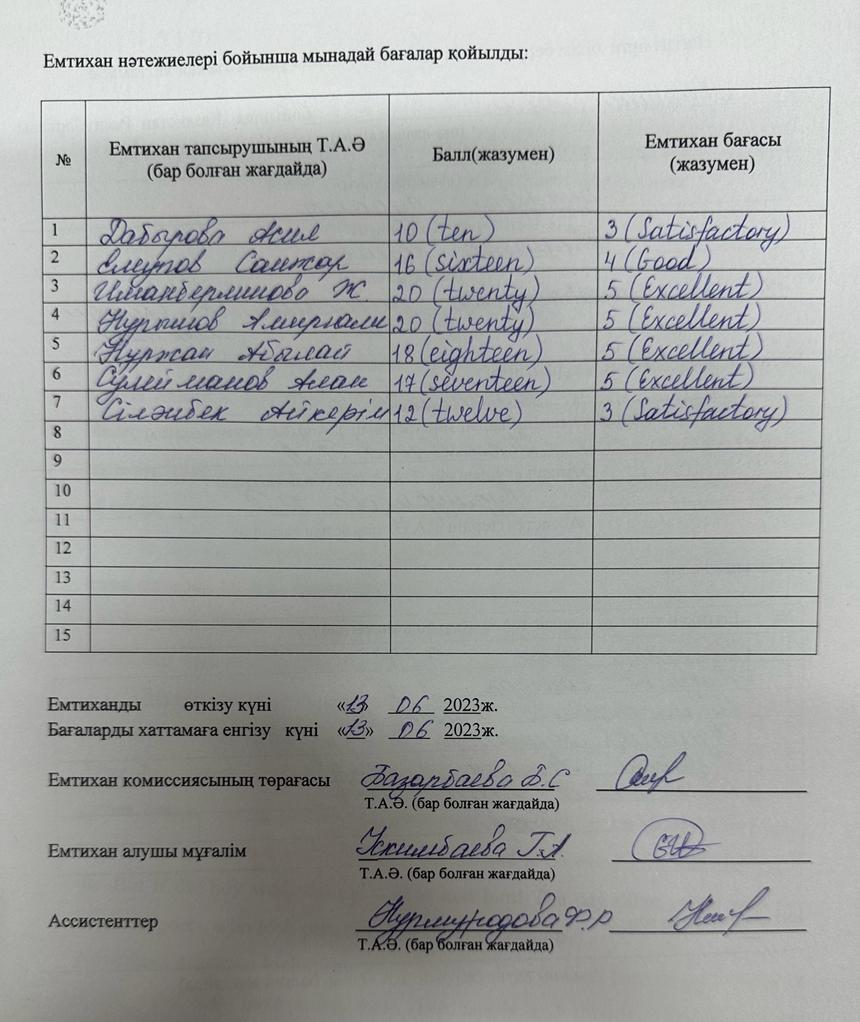 Емтихан нәтежиелері бойынша мынадай бағалар қойылды:
№ Емтихан тапсырушының Т.А.Ә (бар болған жағдайда) Балл(жазумен) Емтихан бағасы (жазумен)
1 Дабырова Акил 10 (ten) 3 (Satisfactory)
2 Елеупов Санжар 16 (sixteen) 4 (Good)
3 Иманберлинова Ж. 20 (twenty) 5 (Excellent)
4 Нурышов Амирғали 20 (twenty) 5 (Excellent)
5 Нуржан Абылай 18 (eighteen) 5 (Excellent)
6 Сулейманов Алан 17 (seventeen) 5 (Excellent)
7 Сіләнбек Айкерім 12 (twelve) 3 (Satisfactory)
8
9
10
11
12
13
14
15
Емтиханды өткізу күні «13» 06 2023ж.
Бағаларды хаттамаға енгізу күні «13» 06 2023ж.
Емтихан комиссиясының төрағасы Базарбаева Б.С
Т.А.Ә. (бар болған жағдайда)
Емтихан алушы мұғалім Ускимбаева Г.А.
Т.А.Ә. (бар болған жағдайда)
Ассистенттер Нурмуродова Ф.Р
Т.А.Ә. (бар болған жағдайда)